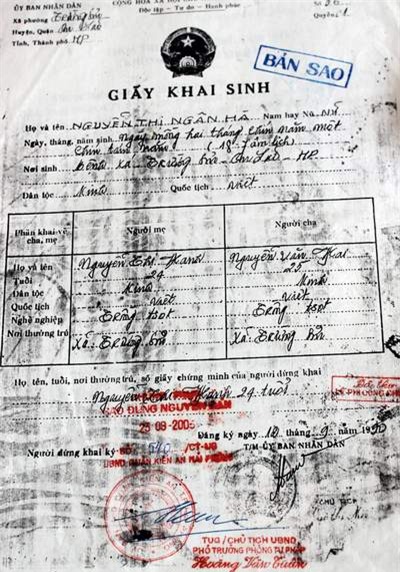 ỦY BAN NHÂN DÂN
Xã phường Trường Sơn
Huyện, Quận An Lão
Tỉnh, Thành phố HP
CỘNG HÒA XÃ HỘI CHỦ NGHĨA VIỆT NAM
Độc lập - Tự do - Hạnh phúc
Số
Quyển 1
BẢN SAO
GIẤY KHAI SINH
Họ và tên NGUYỄN THỊ NGÂN HÀ Nam hay Nữ Nữ
Ngày, tháng, năm sinh Ngày mồng hai tháng chín năm một
chín tám năm (18- âm lịch)
Nơi sinh xã Trường Sơn - An Lão - HP
Dân tộc Kinh Quốc tịch Việt
Phần khai về cha, mẹ
Người mẹ
Người cha
Họ và tên Nguyễn Thị Nguyễn Văn
Tuổi 24 25
Dân tộc Kinh Kinh
Quốc tịch Việt Việt
Nghề nghiệp Trồng trọt Trồng trọt
Nơi thường trú Xã Trường Sơn Xã Trường Sơn
Họ tên, tuổi, nơi thường trú, số giấy chứng minh của người đứng khai
Nguyễn 24 tuổi
SAO ĐÚNG NGUYÊN BẢN
Đăng ký ngày 10 tháng 9 năm
Người đứng khai ký
SỐ /CT-UB
UBND QUẬN KIẾN AN HẢI PHÒNG
T/M ỦY BAN NHÂN DÂN
CHỦ TỊCH
TUQ/CHỦ TỊCH UBND
PHÓ TRƯỞNG PHÒNG TƯ PHÁP
Hoàng Văn Tuấn